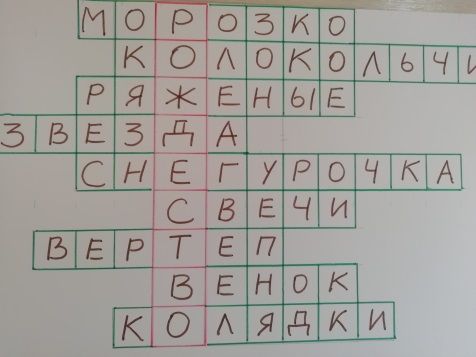 МОРОЗКО
КОЛОКОЛЬЧИ
РЯЖЕНЫЕ
ЗВЕЗДА
СНЕГУРОЧКА
СВЕЧИ
ВЕРТЕП
ВЕНОК
КОЛЯДКИ